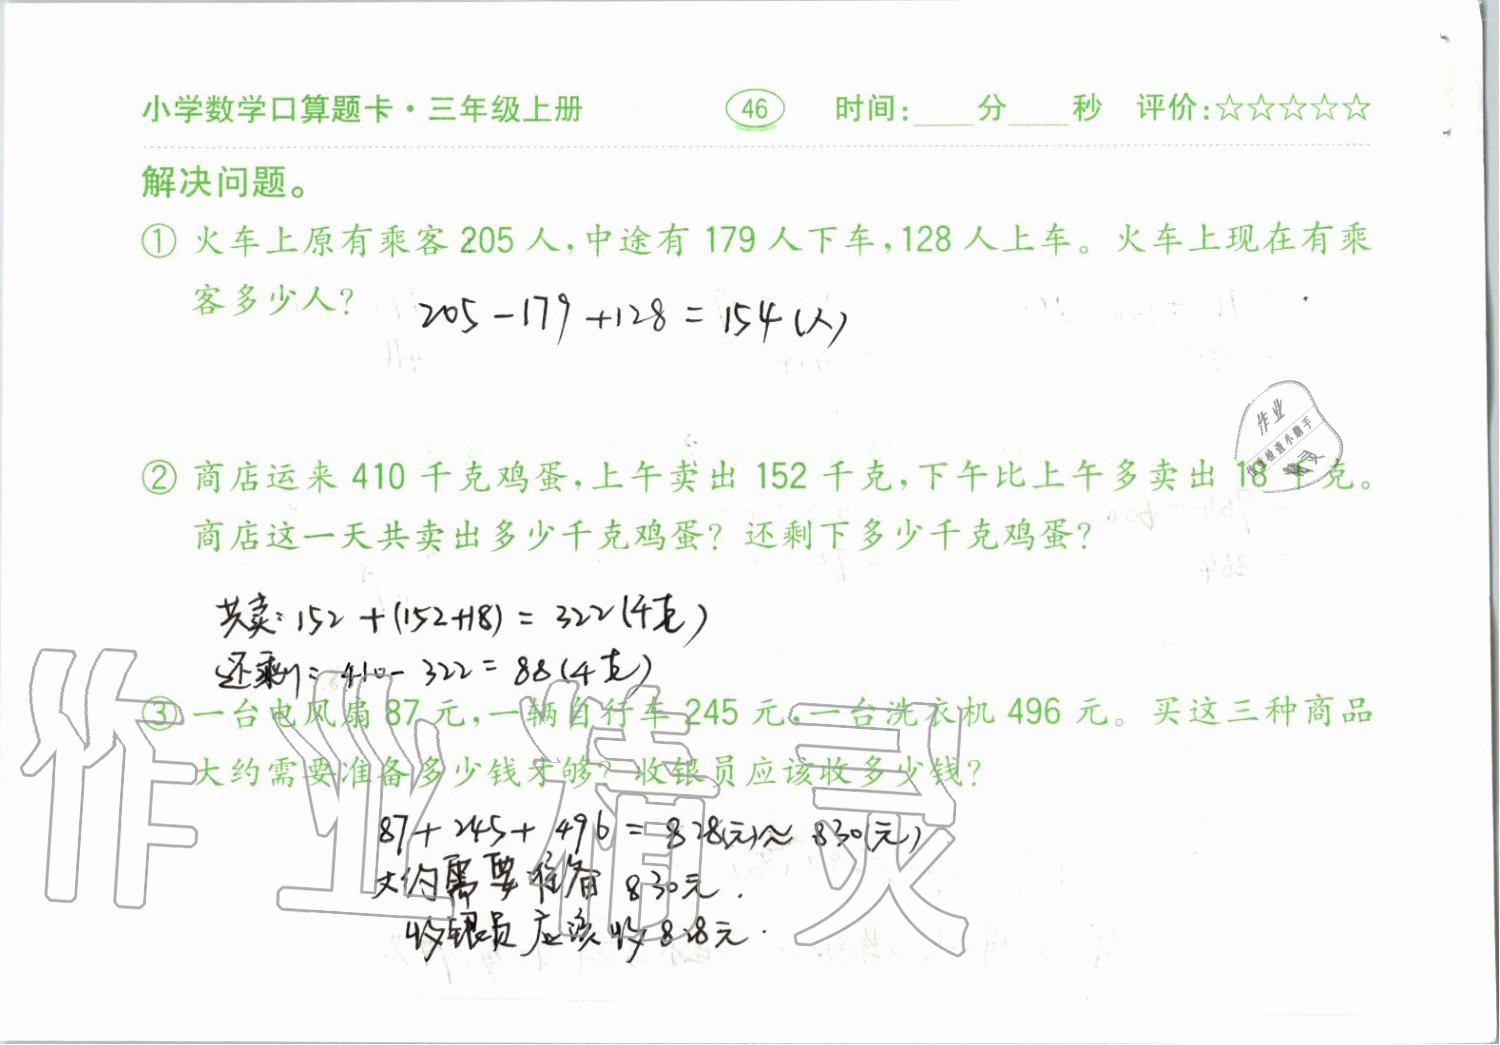 小学数学口算题卡·三年级上册 46 时间:____分____秒 评价:☆☆☆☆☆
解决问题。
① 火车上原有乘客 205 人,中途有 179 人下车,128 人上车。火车上现在有乘
客多少人?
205-179+128=154(人)
② 商店运来 410 千克鸡蛋,上午卖出 152 千克,下午比上午多卖出 18 千克。
商店这一天共卖出多少千克鸡蛋?还剩下多少千克鸡蛋?
作业
作业检查小助手
精灵
共卖:152+(152+18)=322(千克)
还剩:410-322=88(千克)
③ 一台电风扇 87 元,一辆自行车 245 元,一台洗衣机 496 元。买这三种商品
大约需要准备多少钱才够?收银员应该收多少钱?
87+245+496=828(元)≈830(元)
大约需要准备830元.
收银员应该收828元.
作业精灵